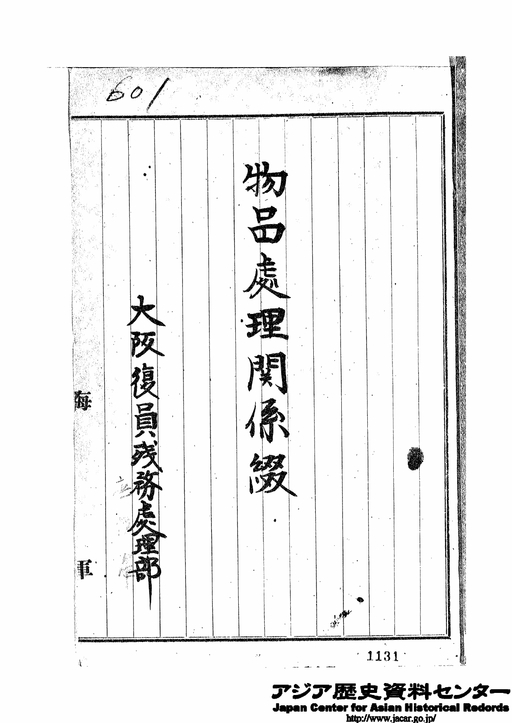 601
物品處理関係綴
大阪復員残務處理部
海軍
1131
アジア歴史資料センター
Japan Center for Asian Historical Records
http://www.jacar.go.jp/